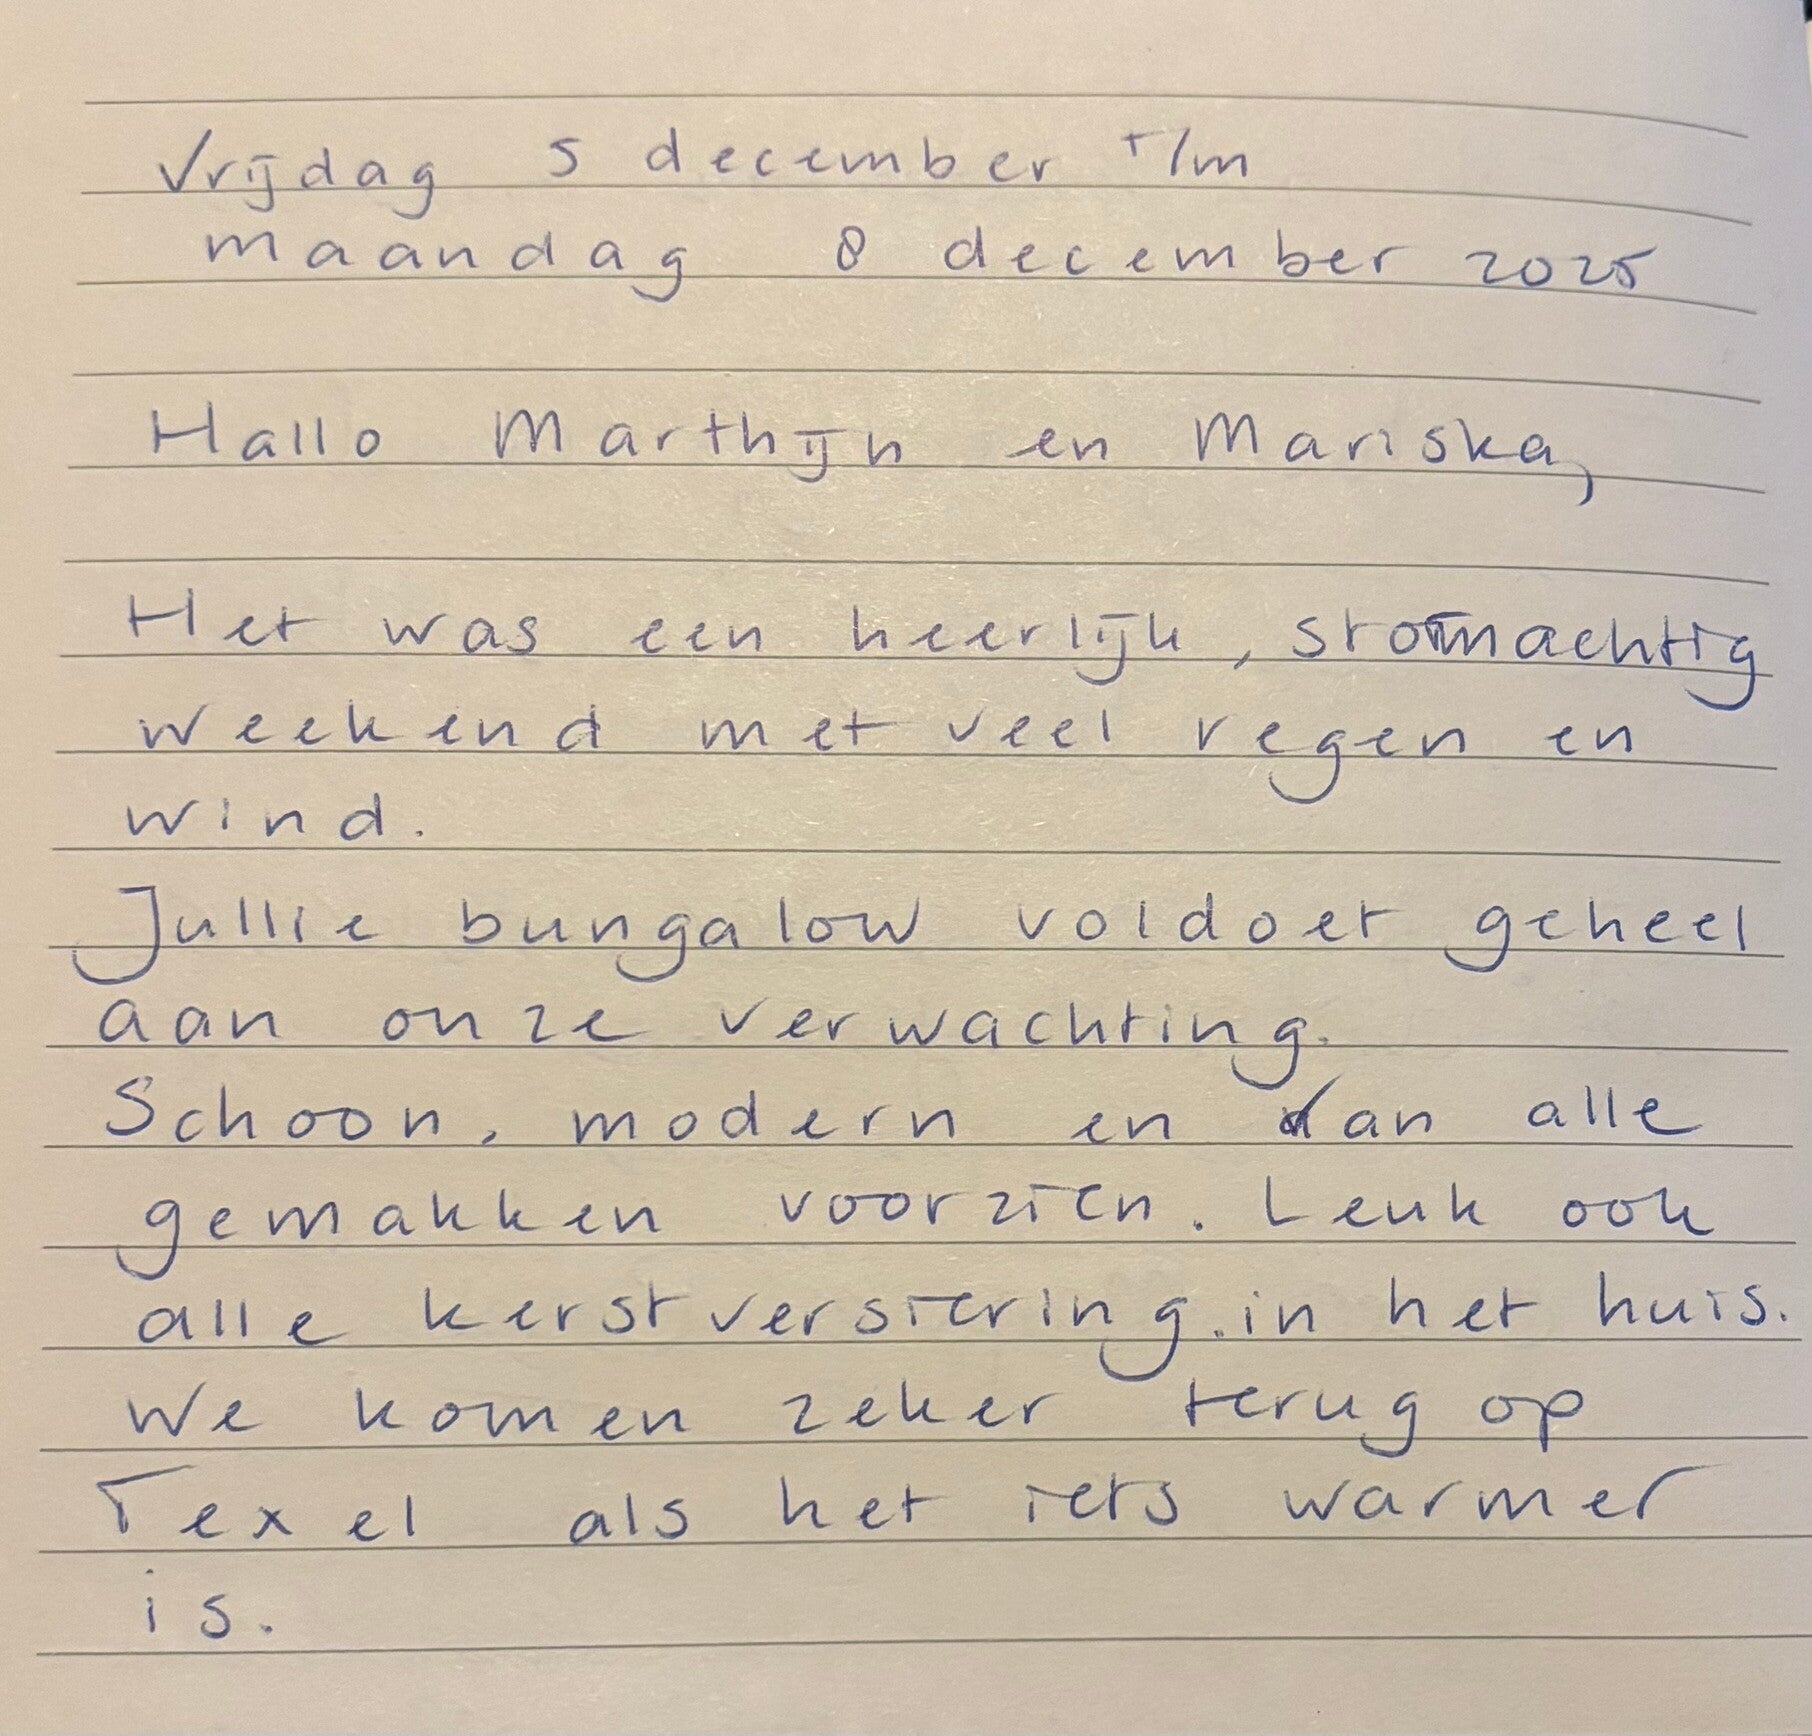 Vrijdag 5 december t/m
maandag 8 december 2025
Hallo Marthijn en Mariska,
Het was een heerlijk, stormachtig
weekend met veel regen en
wind.
Jullie bungalow voldoet geheel
aan onze verwachting.
Schoon, modern en van alle
gemakken voorzien. Leuk ook
alle kerstversiering in het huis.
We komen zeker terug op
Texel als het iets warmer
is.